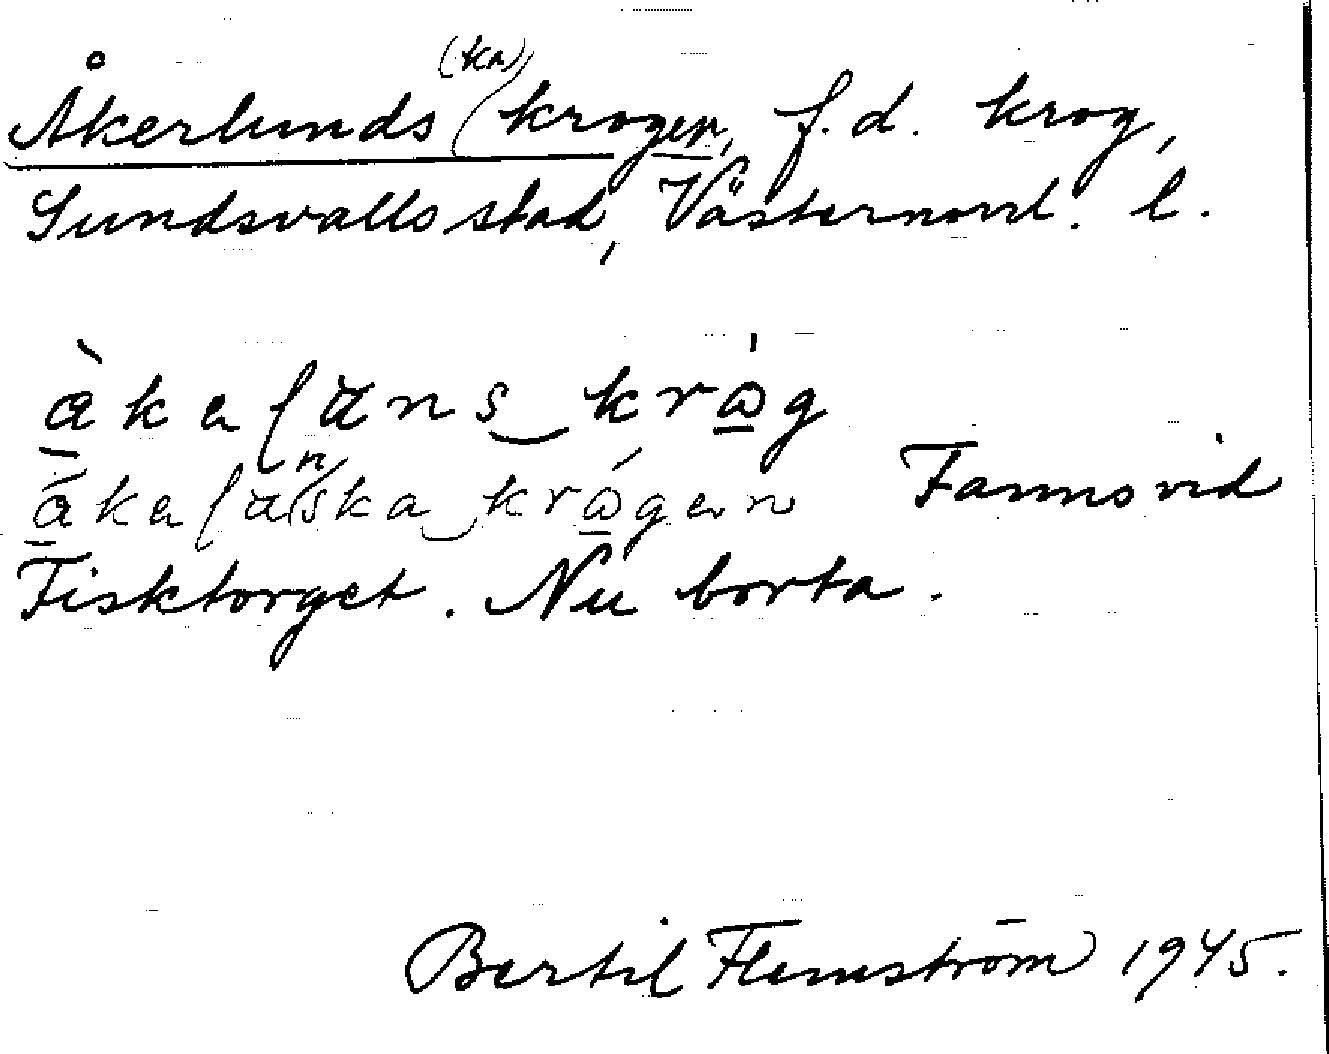 Åkerlunds(ka)krogen, f.d. krog,
Sundsvalls stad, Västernorrl. l.
àkaläns kråg
åkalänska krågen Fanns vid
Fisktorget. Nu borta.
Bertil Flemström 1945.